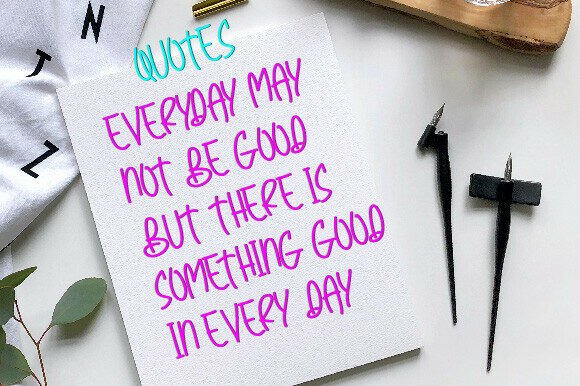 QUOTES
EVERYDAY MAY
NOT BE GOOD
BUT THERE IS
SOMETHING GOOD
IN EVERY DAY
N
J
Z